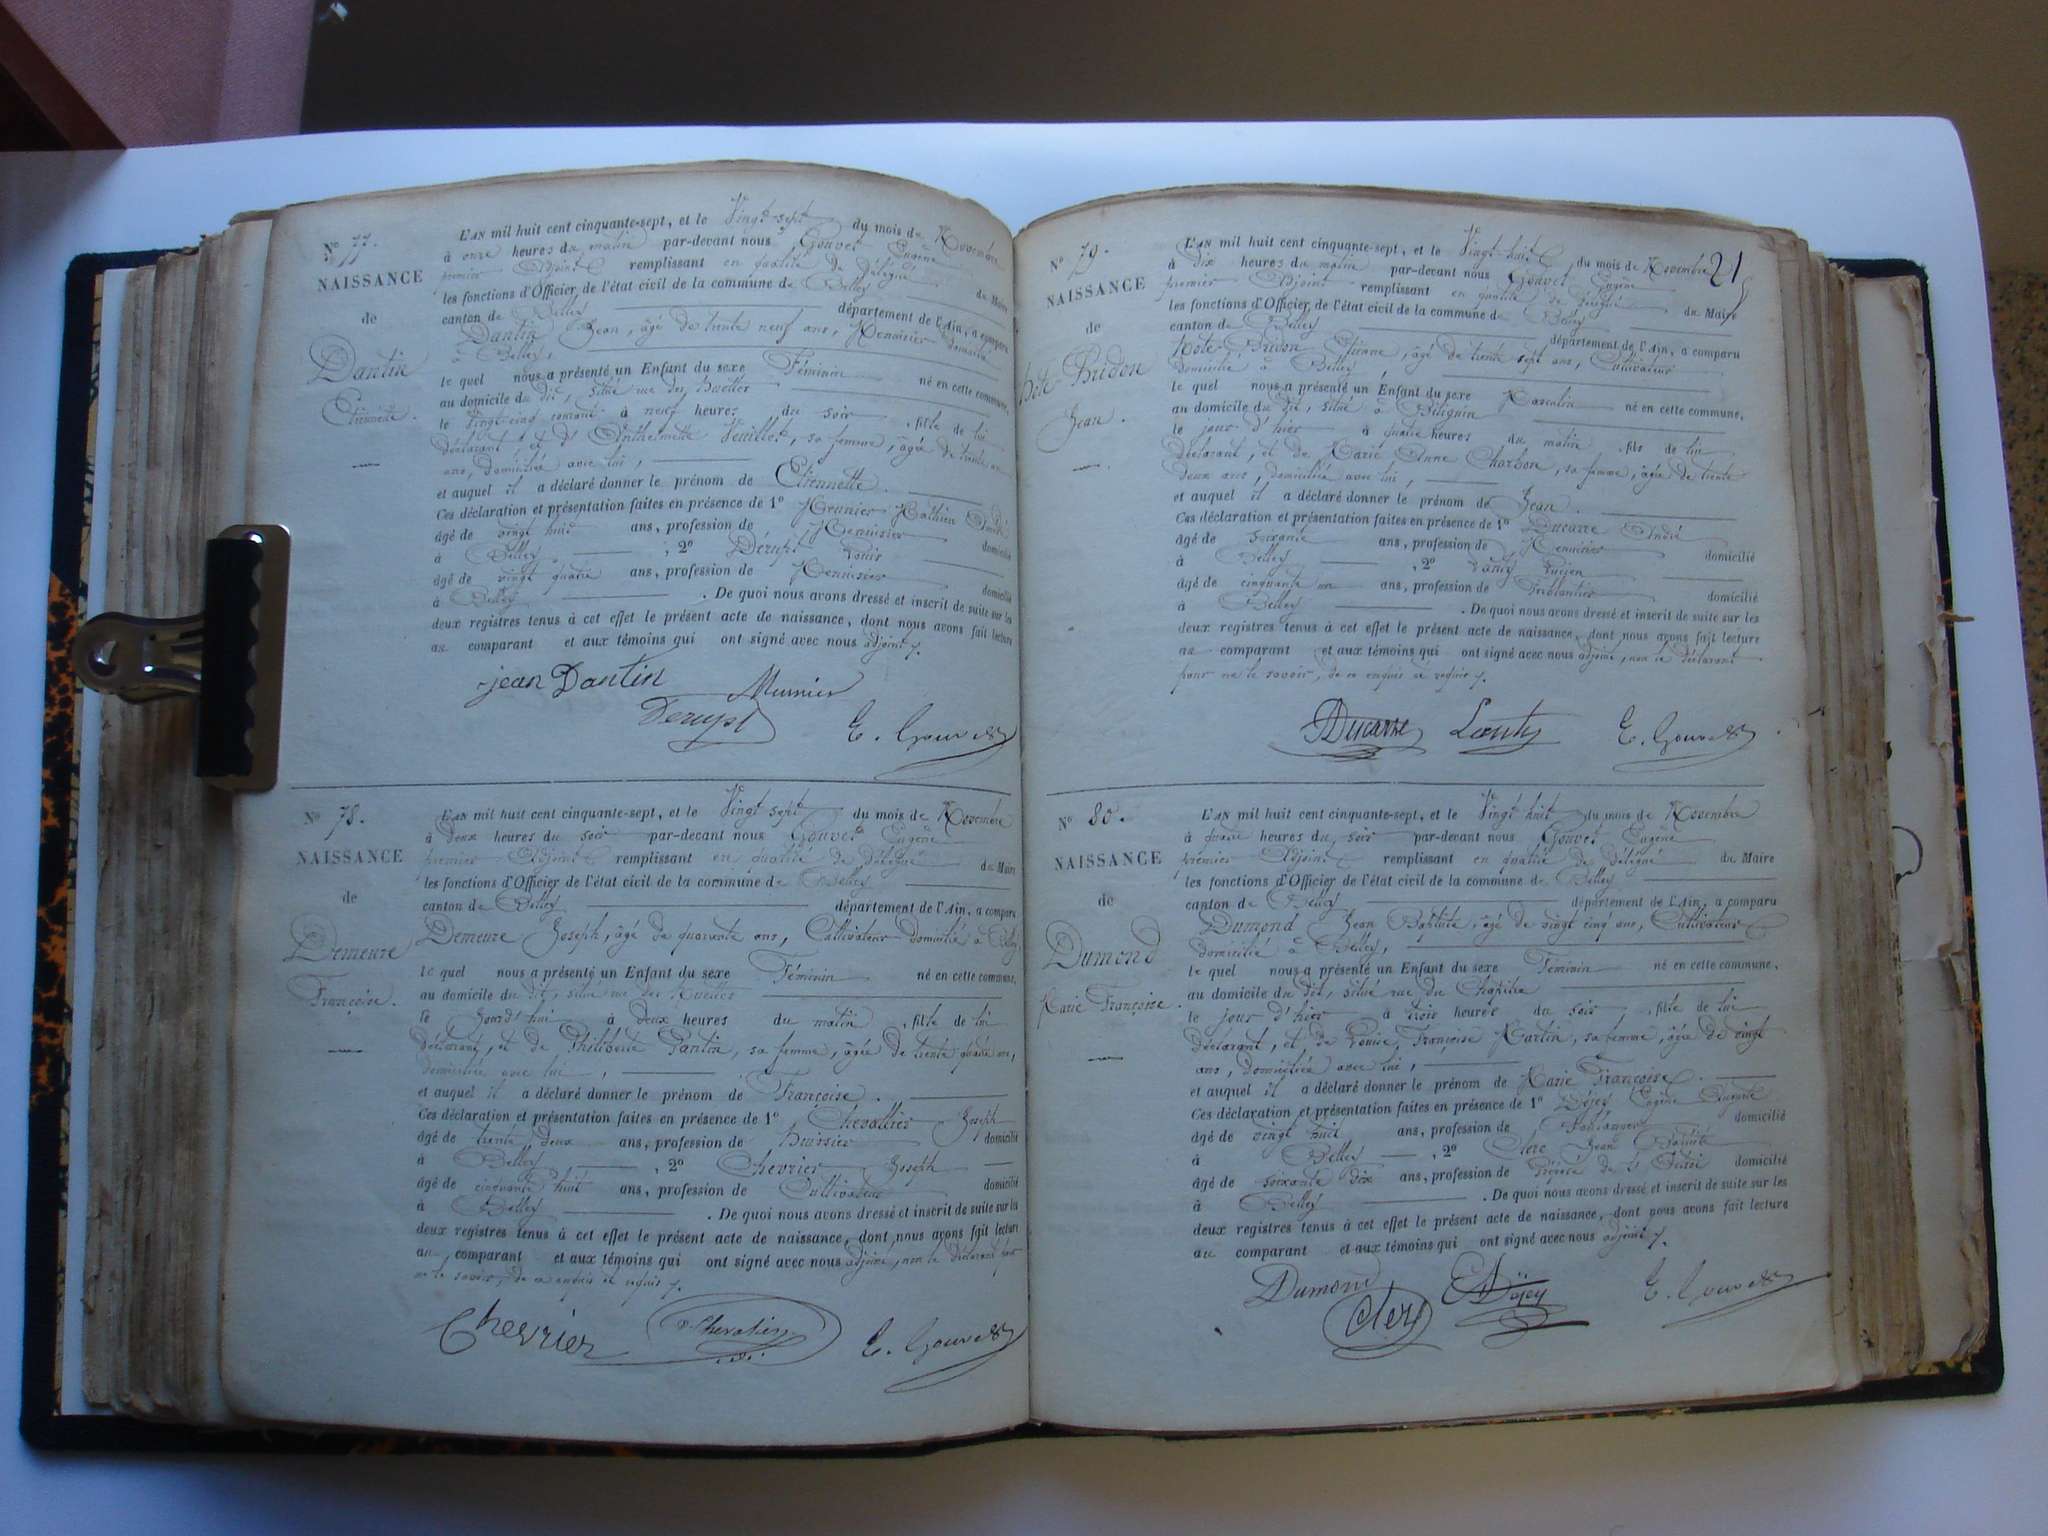 Nº 77.
NAISSANCE
de
Dantin
Etiennette.
L'AN mil huit cent cinquante-sept, et le Vingt-sept du mois de Novembre
à onze heures du matin par-devant nous Gouvet Eugène
premier Adjoint remplissant en qualité de Délégué du Maire
les fonctions d'Officier de l'état civil de la commune de Belley
canton de Belley département de l'Ain, a comparu
Dantin Jean, âgé de trente neuf ans, Menuisier domicilié
à Belley,
le quel nous a présenté un Enfant du sexe Féminin né en cette commune,
au domicile du dit, situé rue des Ruelles
le vingt-cinq courant à neuf heures du soir, fille de lui
déclarant et d'Anthelmette Veuillet, sa femme, âgée de trente
ans, domiciliée avec lui,
et auquel il a déclaré donner le prénom de Etiennette.
Ces déclaration et présentation faites en présence de 1º Meunier Mathieu André
âgé de vingt huit ans, profession de Menuisier domicilié
à Belley, 2º Dérupt Louis
âgé de vingt quatre ans, profession de Menuisier domicilié
à Belley. De quoi nous avons dressé et inscrit de suite sur les
deux registres tenus à cet effet le présent acte de naissance, dont nous avons fait lecture
au comparant et aux témoins qui ont signé avec nous adjoint.
jean Dantin Munier
Derupt E. Gouvet
Nº 78.
NAISSANCE
de
Demeure
Françoise.
L'AN mil huit cent cinquante-sept, et le Vingt sept du mois de Novembre
à deux heures du soir par-devant nous Gouvet Eugène
premier Adjoint remplissant en qualité de Délégué du Maire
les fonctions d'Officier de l'état civil de la commune de Belley
canton de Belley département de l'Ain, a comparu
Demeure Joseph, âgé de quarante ans, Cultivateur domicilié à Belley,
le quel nous a présenté un Enfant du sexe Féminin né en cette commune,
au domicile du dit, situé rue des Ruelles
le jourd'hui à deux heures du matin, fille de lui
déclarant, et de Philiberte Pantin, sa femme, âgée de trente quatre ans,
domiciliée avec lui,
et auquel il a déclaré donner le prénom de Françoise.
Ces déclaration et présentation faites en présence de 1º Chevallier Joseph
âgé de trente deux ans, profession de huissier domicilié
à Belley, 2º Chevrier Joseph
âgé de cinquante huit ans, profession de Cultivateur domicilié
à Belley. De quoi nous avons dressé et inscrit de suite sur les
deux registres tenus à cet effet le présent acte de naissance, dont nous avons fait lecture
au comparant et aux témoins qui ont signé avec nous adjoint, non le déclarant pour
ne le savoir, de ce enquis et requis.
Chevrier Chevalier E. Gouvet
21
Nº 79.
NAISSANCE
de
Hôte-Bridon
Jean.
L'AN mil huit cent cinquante-sept, et le Vingt huit du mois de Novembre
à dix heures du matin par-devant nous Gouvet Eugène
premier Adjoint remplissant en qualité de Délégué du Maire
les fonctions d'Officier de l'état civil de la commune de Belley
canton de Belley département de l'Ain, a comparu
Hote-Bridon Etienne, âgé de trente sept ans, Cultivateur
domicilié à Belley,
le quel nous a présenté un Enfant du sexe Masculin né en cette commune,
au domicile du dit, situé à Bitignin
le jour d'hier à quatre heures du matin, fils de lui
déclarant, et de Marie Anne Charbon, sa femme, âgée de trente
deux ans, domiciliée avec lui,
et auquel il a déclaré donner le prénom de Jean.
Ces déclaration et présentation faites en présence de 1º Ducarre André
âgé de soixante ans, profession de Menuisier domicilié
à Belley, 2º Lucien
âgé de cinquante un ans, profession de Ferblantier domicilié
à Belley. De quoi nous avons dressé et inscrit de suite sur les
deux registres tenus à cet effet le présent acte de naissance, dont nous avons fait lecture
au comparant et aux témoins qui ont signé avec nous adjoint, non le déclarant
pour ne le savoir, de ce enquis et requis.
Ducarre E. Gouvet
Nº 80.
NAISSANCE
de
Dumond
Marie Françoise.
L'AN mil huit cent cinquante-sept, et le Vingt huit du mois de Novembre
à quatre heures du soir par-devant nous Gouvet Eugène
premier Adjoint remplissant en qualité de Délégué du Maire
les fonctions d'Officier de l'état civil de la commune de Belley
canton de Belley département de l'Ain, a comparu
Dumond Jean Baptiste, âgé de vingt cinq ans, Cultivateur
domicilié à Belley,
le quel nous a présenté un Enfant du sexe Féminin né en cette commune,
au domicile du dit, situé rue du Chapitre
le jour d'hier à trois heures du soir, fille de lui
déclarant, et de Louise Françoise Martin, sa femme, âgée de vingt
ans, domiciliée avec lui,
et auquel il a déclaré donner le prénom de Marie Françoise.
Ces déclaration et présentation faites en présence de 1º Déjey Eugène Auguste
âgé de vingt huit ans, profession de Boulanger domicilié
à Belley, 2º Clerc Jean Baptiste
âgé de soixante dix ans, profession de domicilié
à Belley. De quoi nous avons dressé et inscrit de suite sur les
deux registres tenus à cet effet le présent acte de naissance, dont nous avons fait lecture
au comparant et aux témoins qui ont signé avec nous adjoint.
Dumond Clerc Déjey E. Gouvet